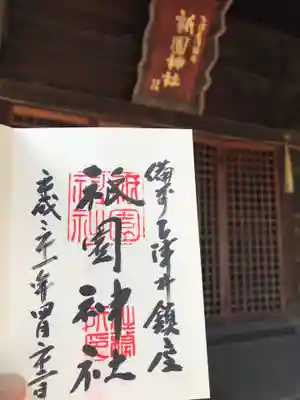 祇園神社
備前下津井鎮座
祇園神社
祇園
神社
平成三十一年四月二十二日